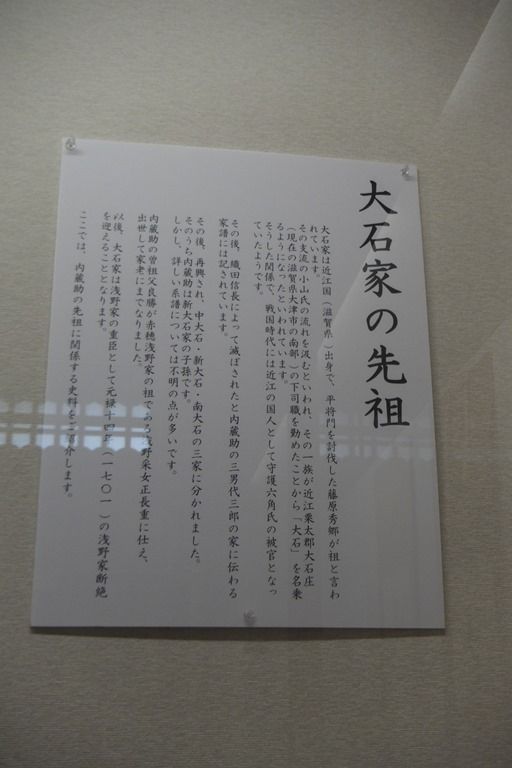 大石家の先祖
大石家は近江国（滋賀県）出身で、平将門を討伐した藤原秀郷が祖と言わ
れています。
その支流の小山氏の流れを汲むといわれ、その一族が近江栗太郡大石庄
（現在の滋賀県大津市の南部）の下司職を勤めたことから「大石」を名乗
るようになったといわれています。
そうした関係で、戦国時代には近江の国人として守護六角氏の被官となっ
ていたようです。
その後、織田信長によって滅ぼされたと内蔵助の三男代三郎の家に伝わる
家譜には記されています。
その後、再興され、中大石・新大石・南大石の三家に分かれました。
そのうち内蔵助は新大石家の子孫です。
しかし、詳しい系譜については不明の点が多いです。
内蔵助の曽祖父良勝が赤穂浅野家の祖である浅野采女正長重に仕え、
出世して家老にまでなりました。
以後、大石家は浅野家の重臣として元禄十四年（一七〇一）の浅野家断絶
を迎えることとなります。
ここでは、内蔵助の先祖に関係する史料をご紹介します。